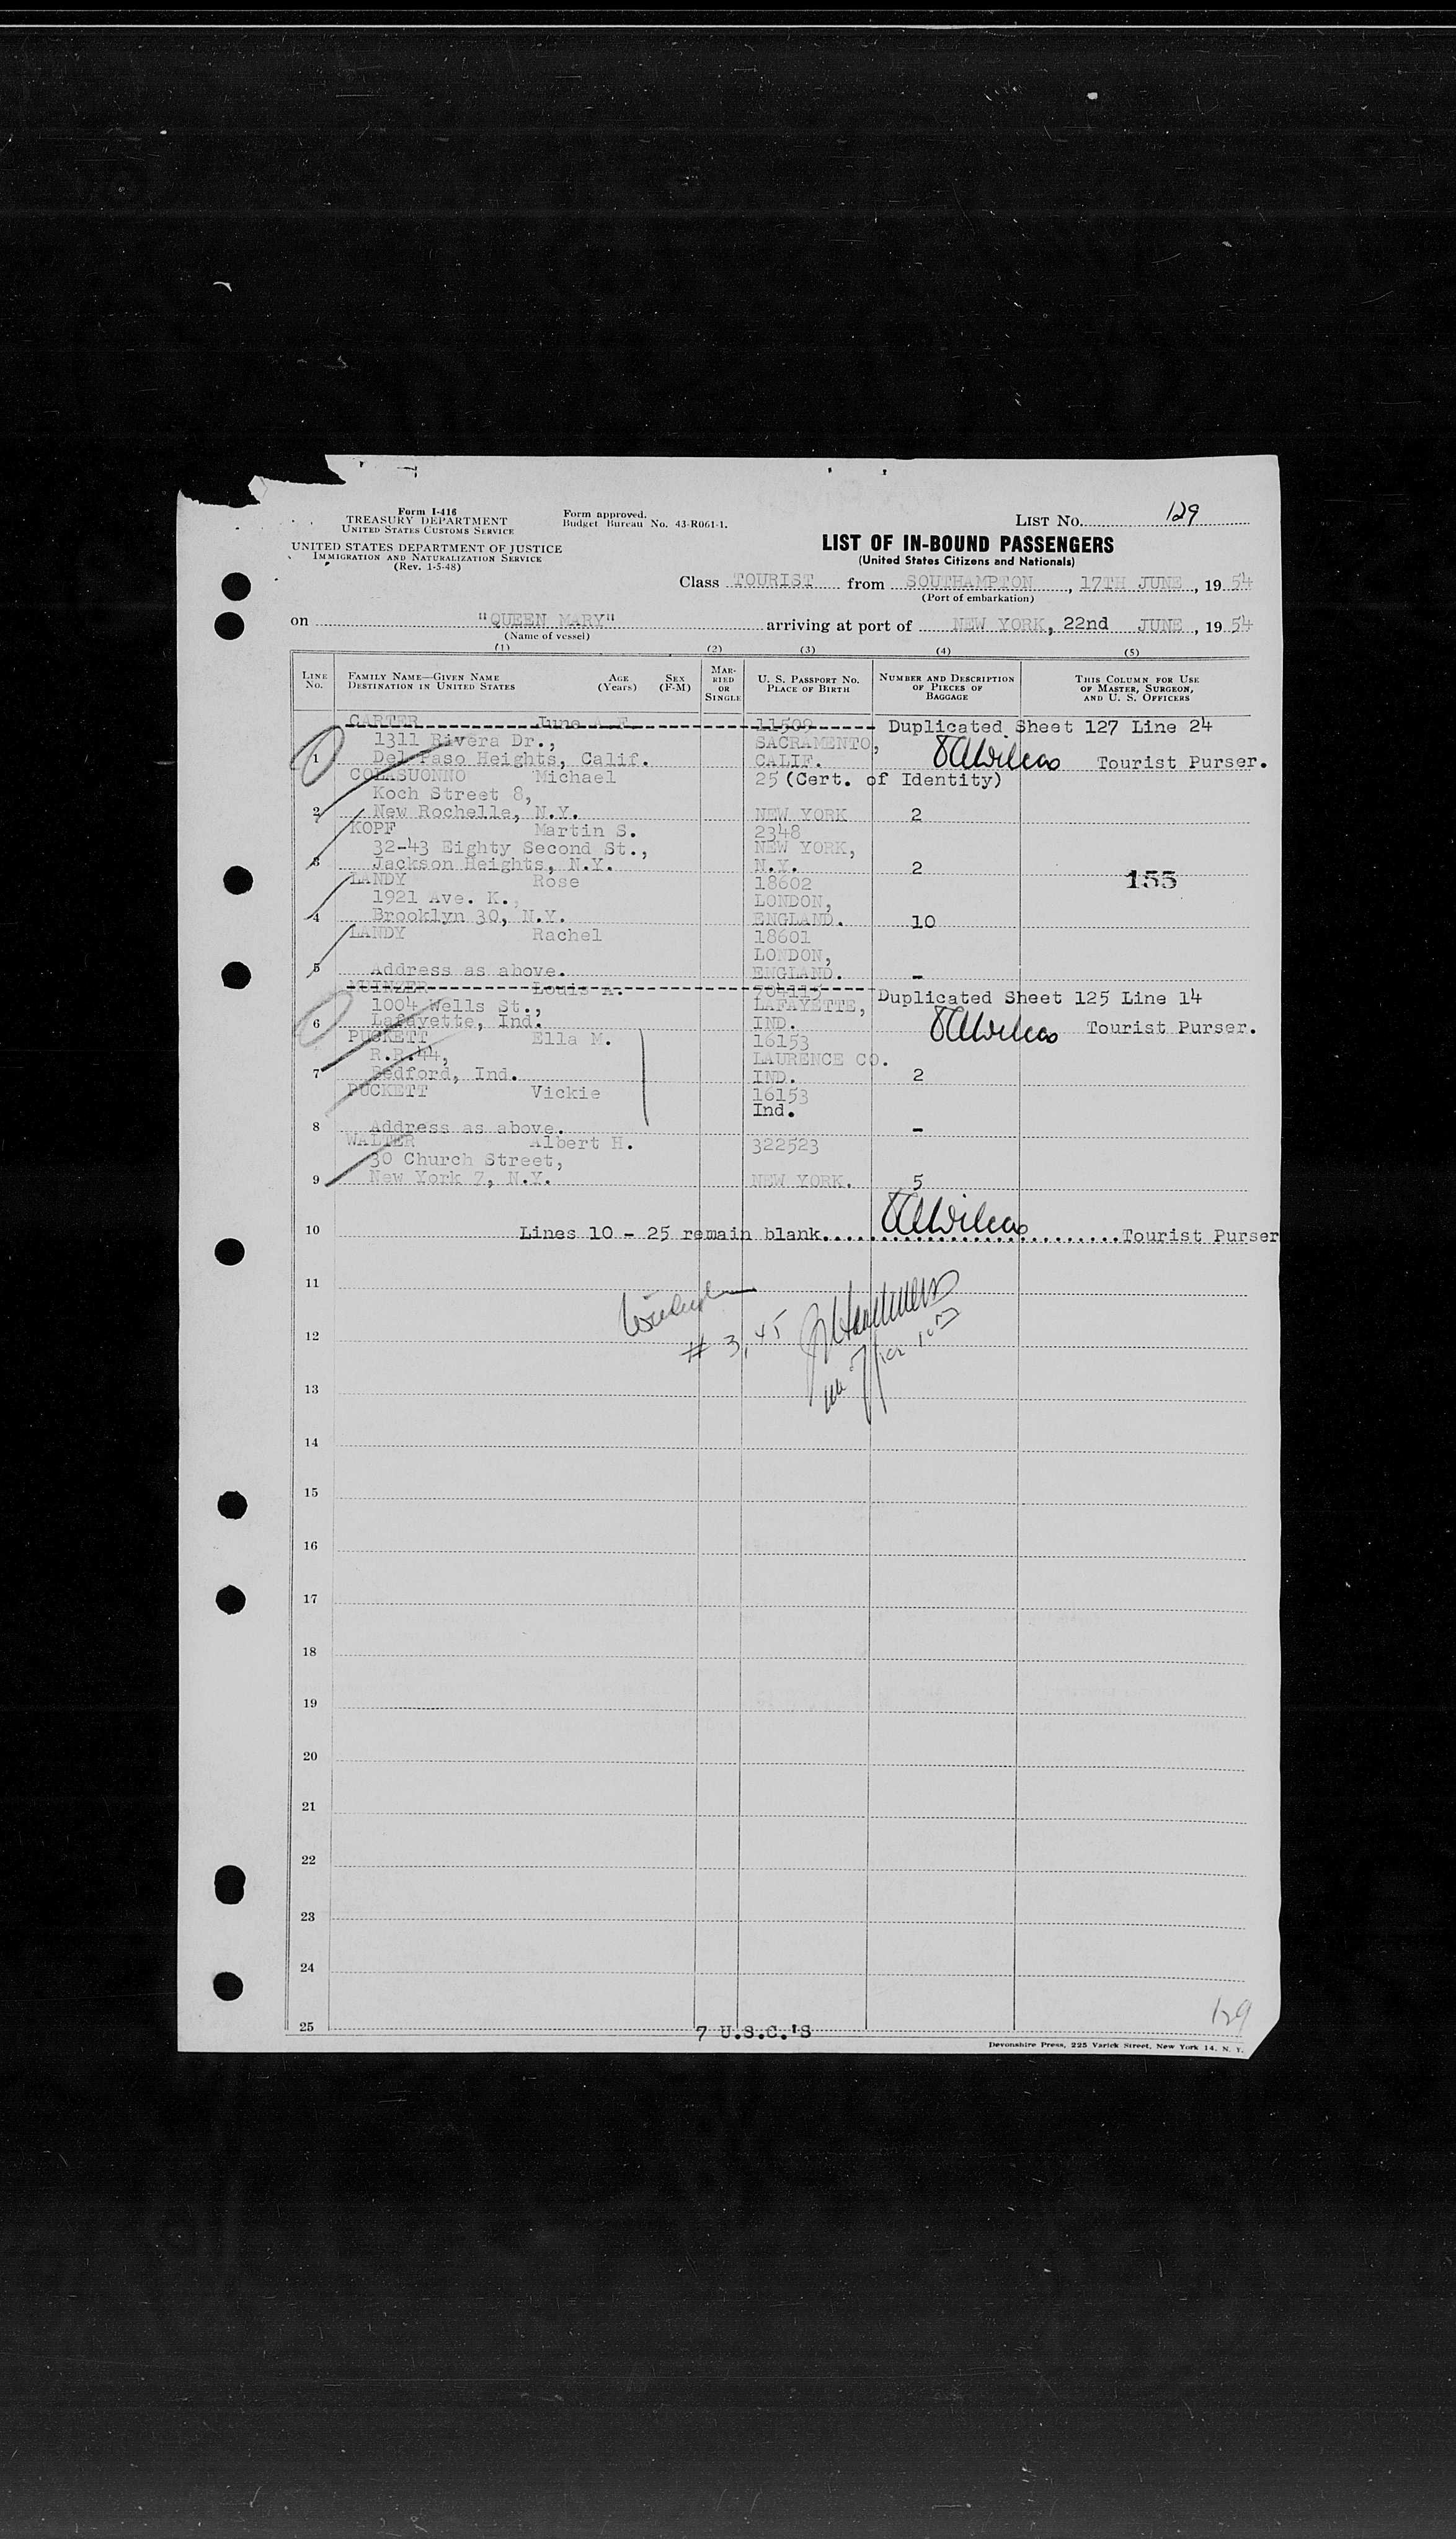 Form I-416
TREASURY DEPARTMENT
UNITED STATES CUSTOMS SERVICE
Form approved.
Budget Bureau No. 43-R061-1.
LIST NO. 129
UNITED STATES DEPARTMENT OF JUSTICE
IMMIGRATION AND NATURALIZATION SERVICE
(Rev. 1-5-48)
LIST OF IN-BOUND PASSENGERS
(United States Citizens and Nationals)
Class TOURIST from SOUTHAMPTON, 17TH JUNE, 1954
(Port of embarkation)
on "QUEEN MARY" arriving at port of NEW YORK, 22nd JUNE, 1954
(Name of vessel)
(1) (2) (3) (4) (5)
LINE NO.
FAMILY NAME—GIVEN NAME
DESTINATION IN UNITED STATES
AGE (Years)
SEX (F-M)
MARRIED OR SINGLE
U. S. PASSPORT NO.
PLACE OF BIRTH
NUMBER AND DESCRIPTION OF PIECES OF BAGGAGE
THIS COLUMN FOR USE OF MASTER, SURGEON, AND U. S. OFFICERS
CARTER June A.F. 11509 Duplicated Sheet 127 Line 24
1311 Rivera Dr., SACRAMENTO,
1 Del Paso Heights, Calif. CALIF. Tourist Purser.
COLASUONNO Michael 25 (Cert. of Identity)
Koch Street 8,
2 New Rochelle, N.Y. NEW YORK 2
KOPF Martin S. 2348
32-43 Eighty Second St., NEW YORK,
3 Jackson Heights, N.Y. N.Y. 2
LANDY Rose 18602 155
1921 Ave. K., LONDON,
4 Brooklyn 30, N.Y. ENGLAND. 10
LANDY Rachel 18601
LONDON,
5 Address as above. ENGLAND. -
MUINZER Louis A. 704115 Duplicated Sheet 125 Line 14
1004 Wells St., LAFAYETTE,
6 Lafayette, Ind. IND. Tourist Purser.
PUCKETT Ella M. 16153
R.R.44, LAURENCE CO.
7 Bedford, Ind. IND. 2
PUCKETT Vickie 16153
Ind.
8 Address as above. -
WALTER Albert H. 322523
30 Church Street,
9 New York 7, N.Y. NEW YORK. 5
10 Lines 10 - 25 remain blank. Tourist Purser
11
12 # 3, 45
13
14
15
16
17
18
19
20
21
22
23
24
25 7 U.S.C.'S
129
Devonshire Press, 225 Varick Street, New York 14, N. Y.